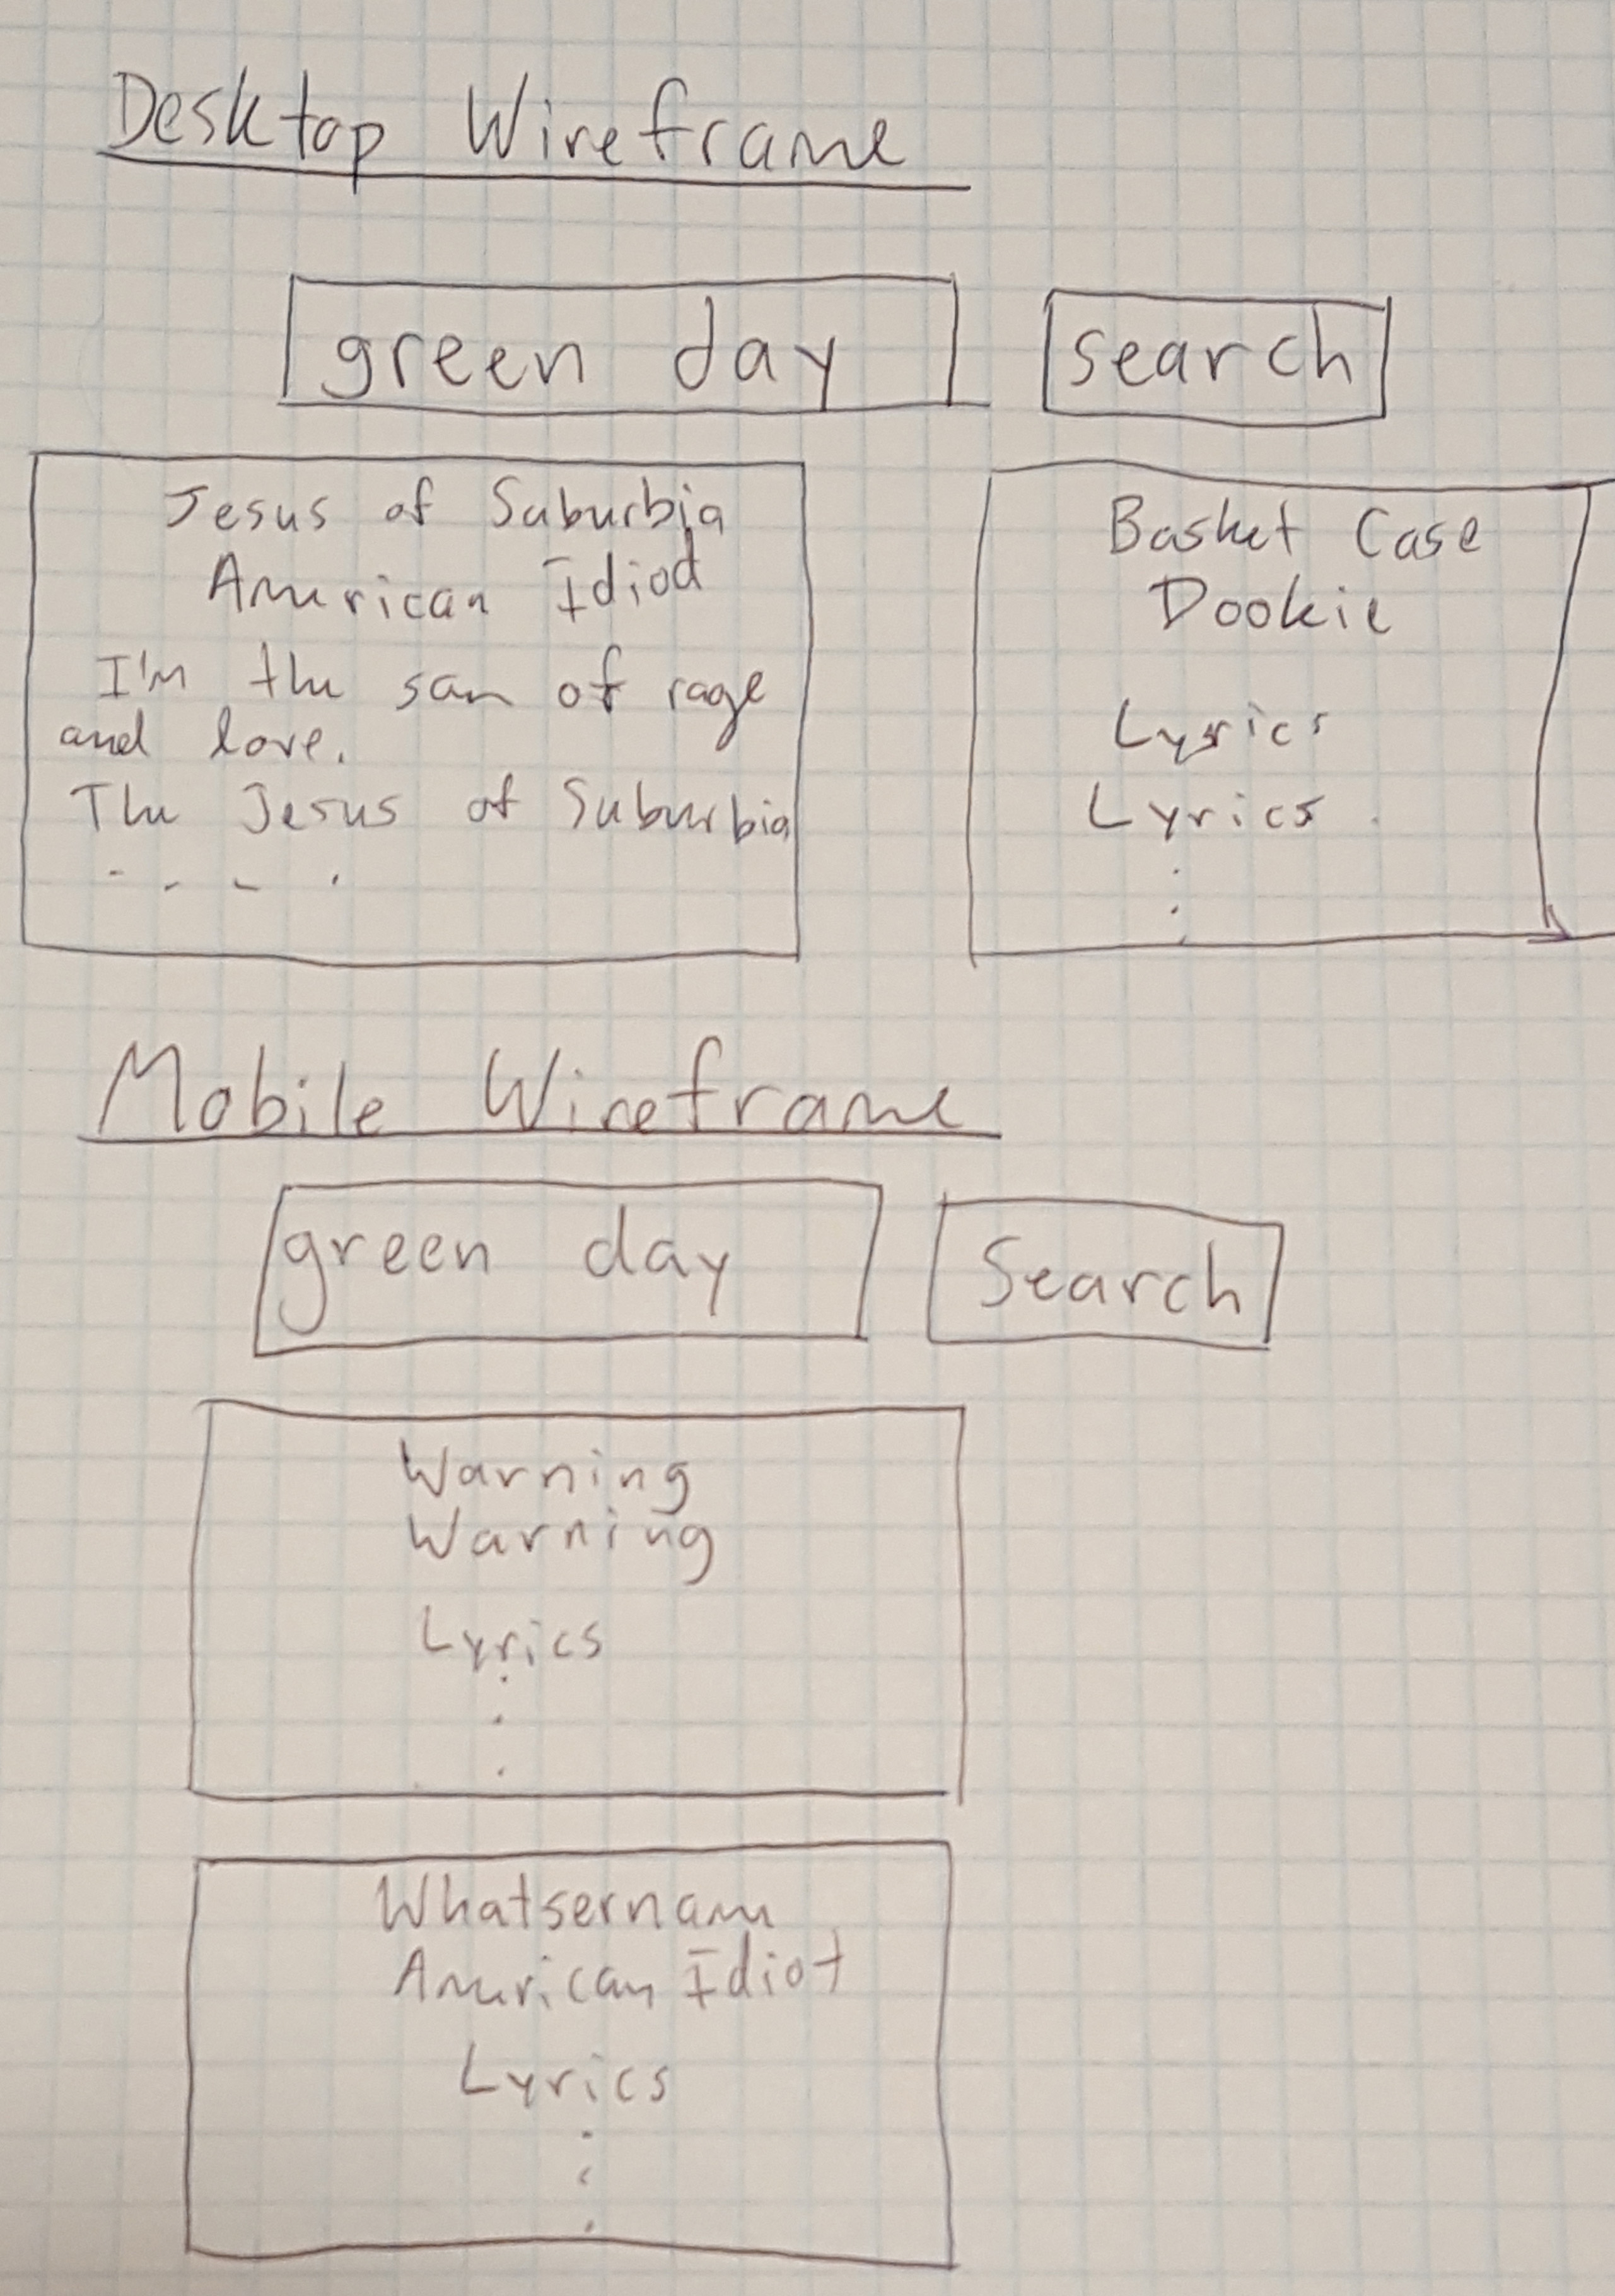 Desktop Wireframe
green day
search
Jesus of Suburbia
American Idiod
I'm the son of rage
and love.
The Jesus of Suburbia
Basket Case
Dookie
Lyrics
Lyrics
Mobile Wireframe
green day
Search
Warning
Warning
Lyrics
Whatsername
American Idiot
Lyrics